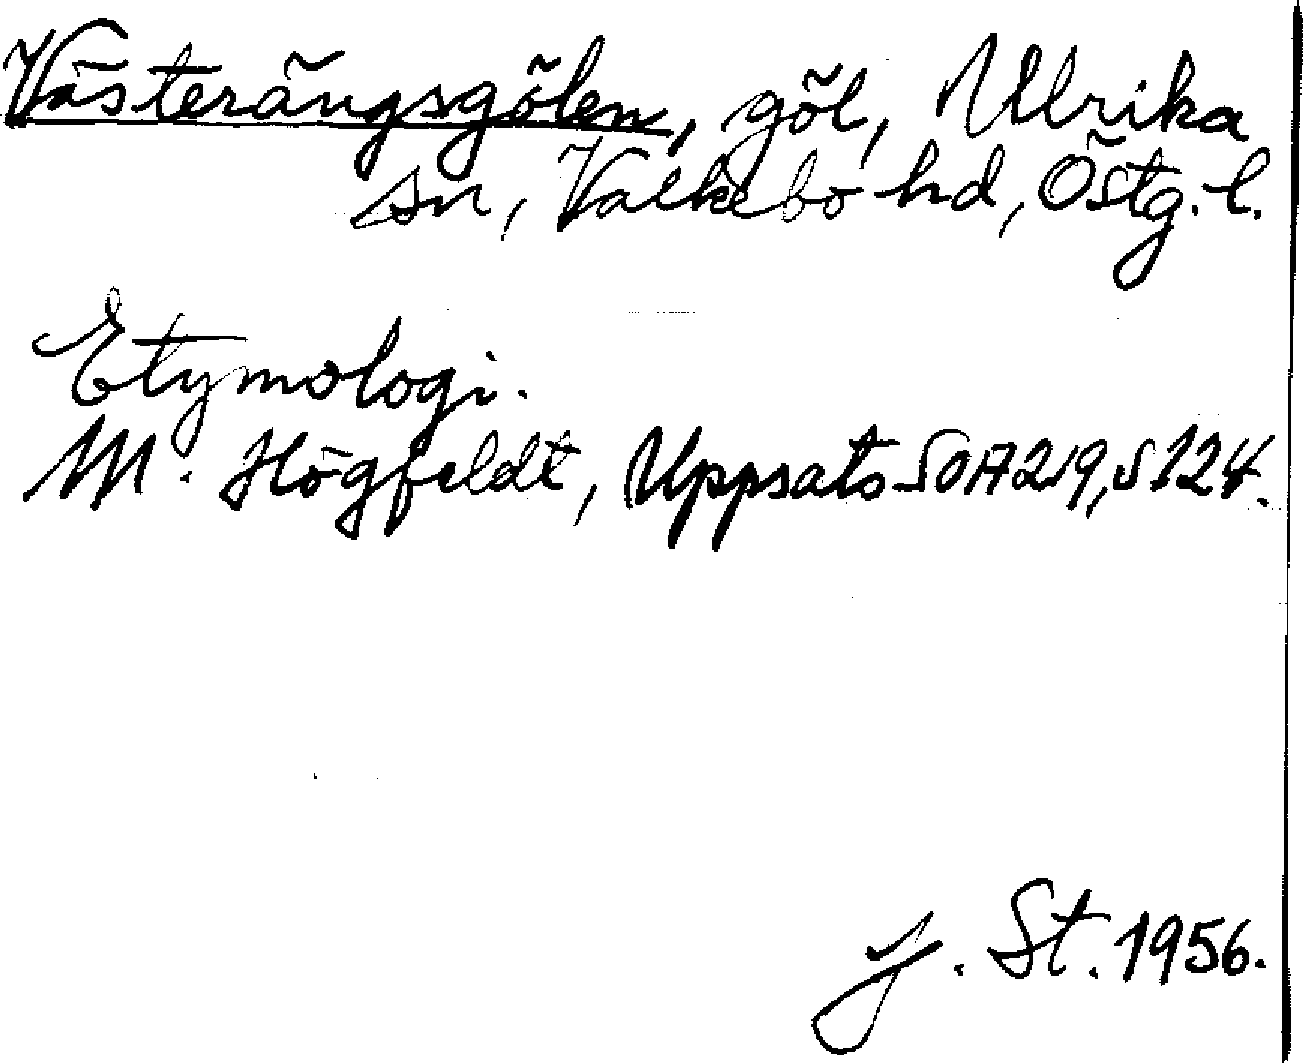 Västerängsgölen, göl, Ulrika
sn, Valkebo hd, Östg. l.
Etymologi.
M. Högfeldt, Uppsats SOA 219, s 124.
J. St. 1956.